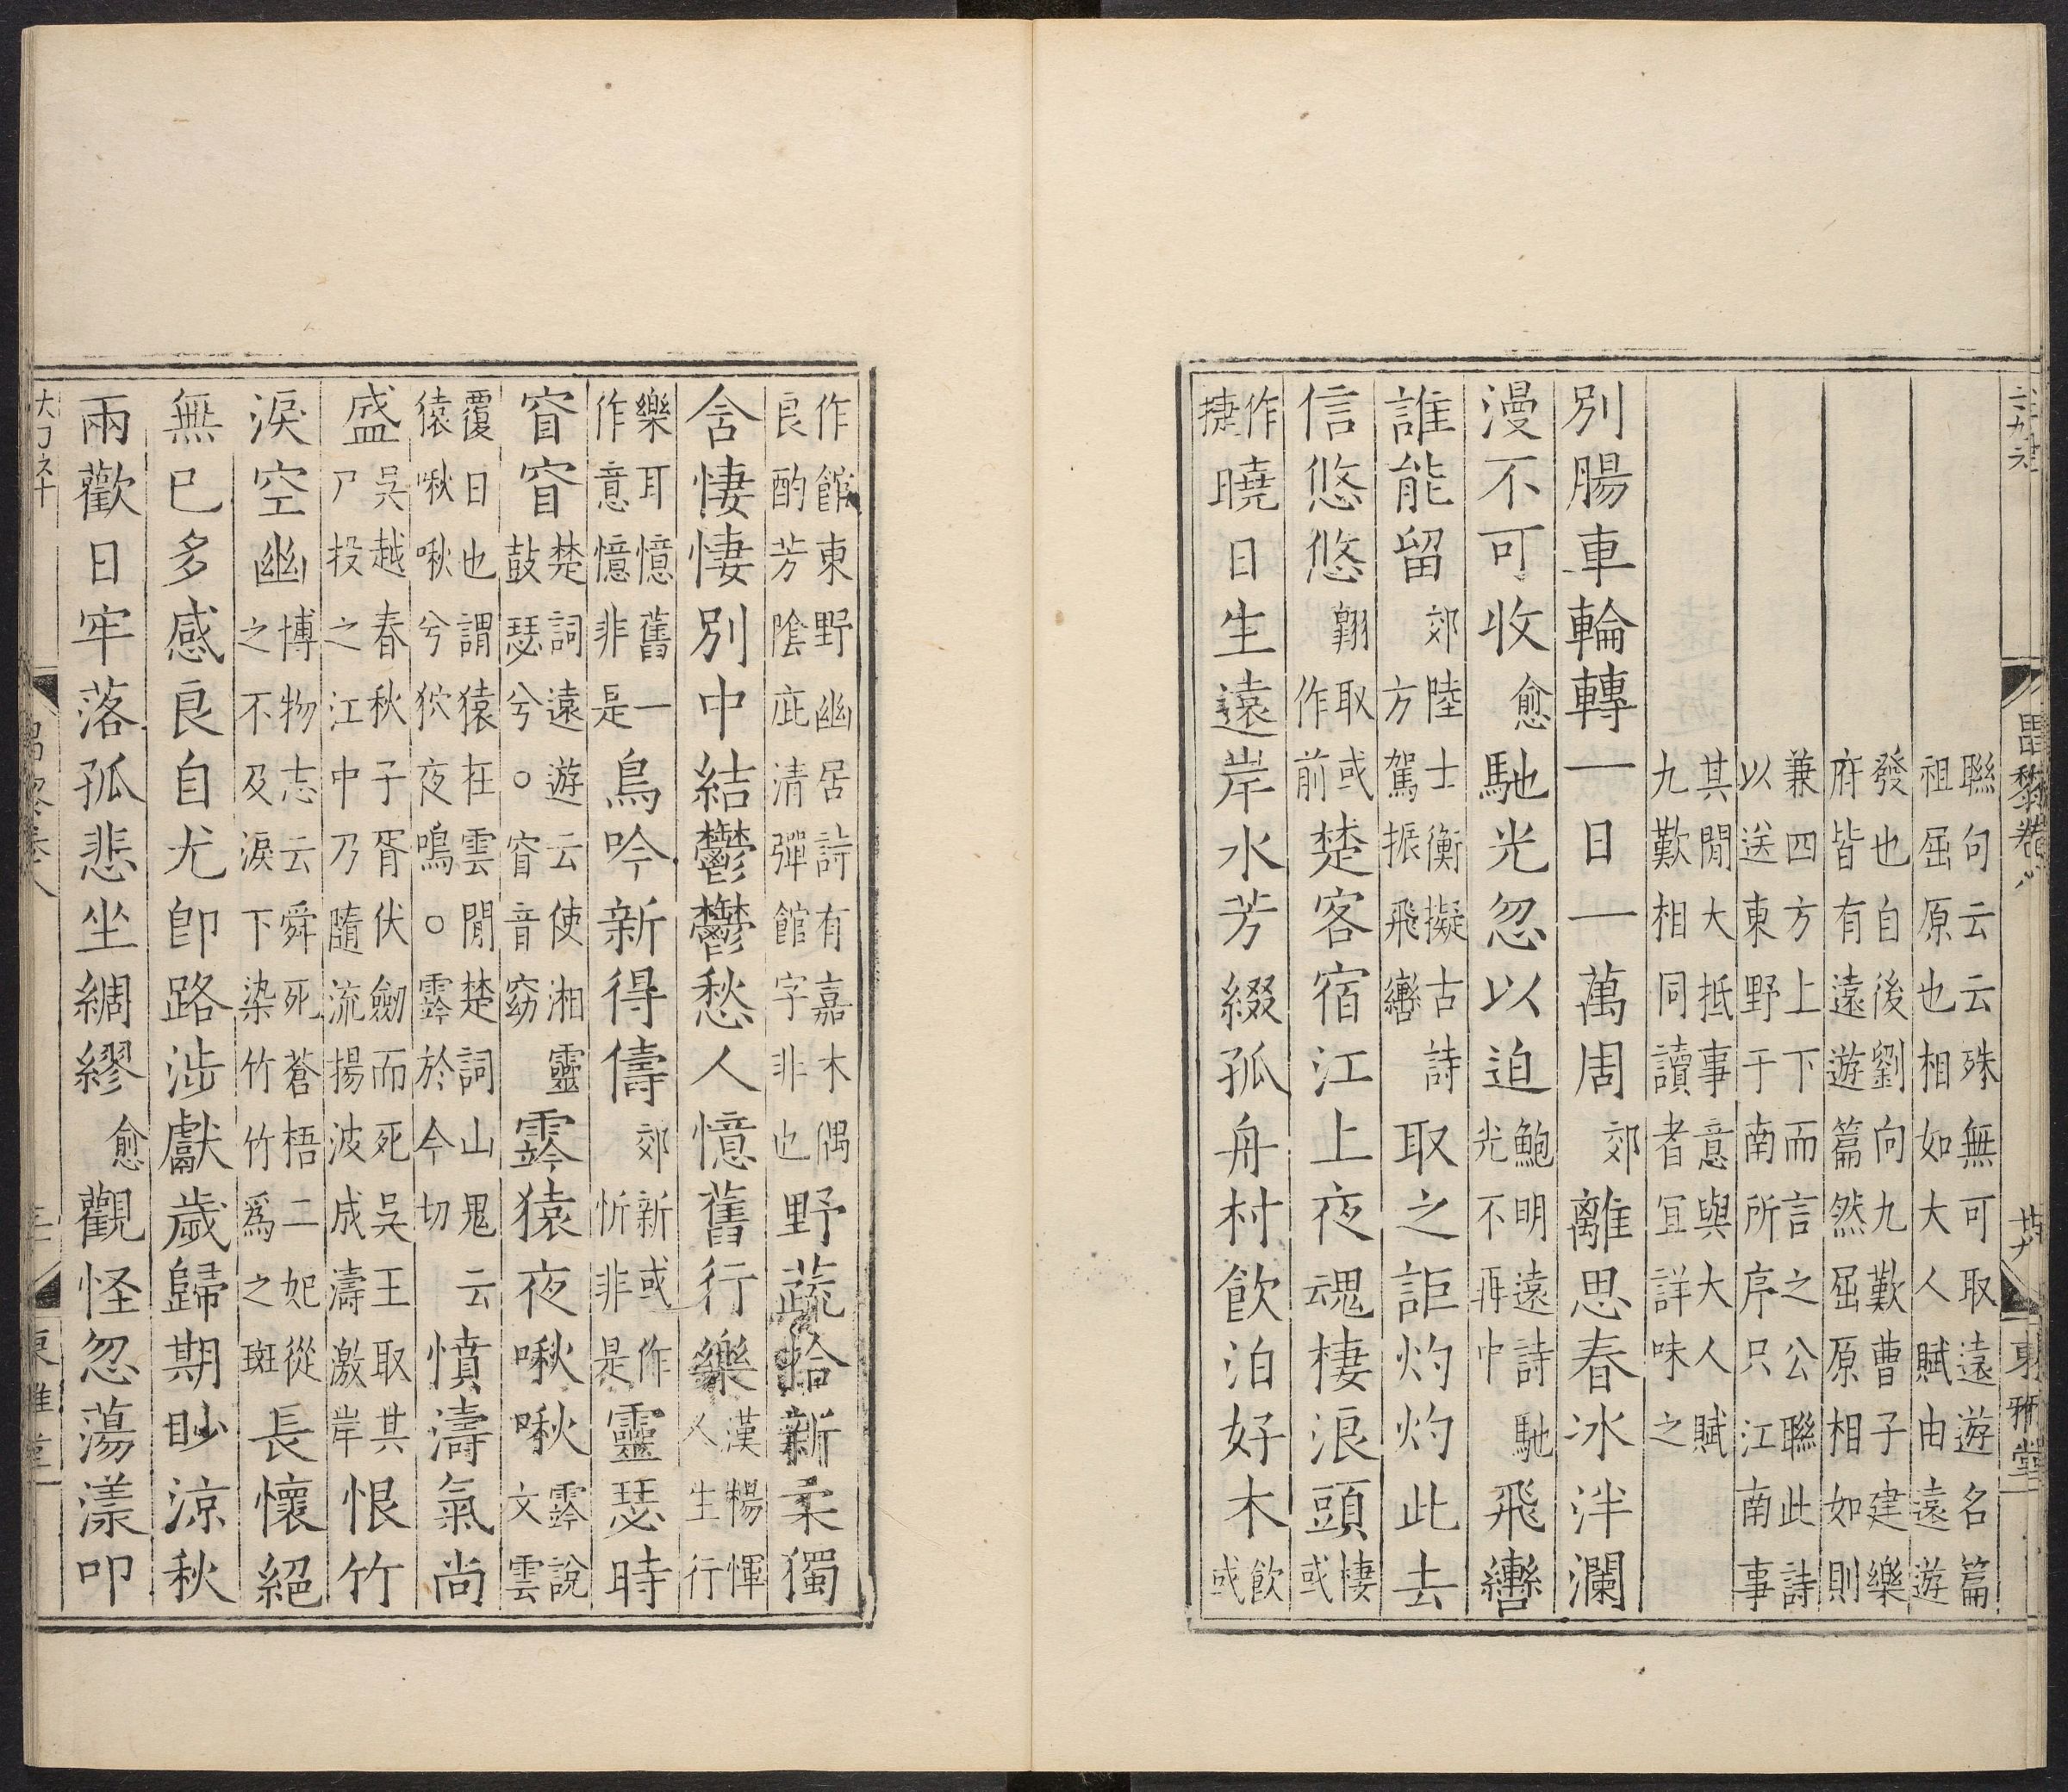 昌黎卷八
東雅堂
聯句云云殊無可取遠遊名篇
祖屈原也相如大人賦由遠遊
發也自後劉向九歎曹子建樂
府皆有遠遊篇然屈原相如則
兼四方上下而言之公聯此詩
以送東野于南所序只江南事
其閒大抵事意與大人賦
九歎相同讀者宜詳味之
別腸車輪轉一日一萬周郊離思春冰泮瀾
漫不可收愈馳光忽以迫鮑明遠詩馳光不再中飛轡
誰能留郊陸士衡擬古詩方駕振飛轡取之詎灼灼此去
信悠悠翺取或作前楚客宿江上夜魂棲浪頭棲或
作捷曉日生遠岸水芳綴孤舟村飲泊好木飲或
作館東野幽居詩有嘉木偶
良酌芳陰庇清彈館字非也野蔬拾新柔獨
含悽悽別中結鬱鬱愁人憶舊行樂漢楊惲人生行
樂耳憶舊一作意憶非是鳥吟新得儔郊新或作忻非是靈瑟時
窅窅楚詞遠遊云使湘靈鼓瑟兮○窅音窈霠猿夜啾啾霠說文雲
覆日也謂猿在雲閒楚詞山鬼云
猿啾啾兮狖夜鳴○霠於今切憤濤氣尚
盛吳越春秋子胥伏劒而死吳王取其尸投之江中乃隨流揚波成濤激岸恨竹
淚空幽博物志云舜死蒼梧二妃從之不及淚下染竹竹爲之斑長懷絕
無已多感良自尤卽路涉獻歲歸期眇涼秋
兩歡日牢落孤悲坐綢繆愈觀怪忽蕩漾叩
東雅堂